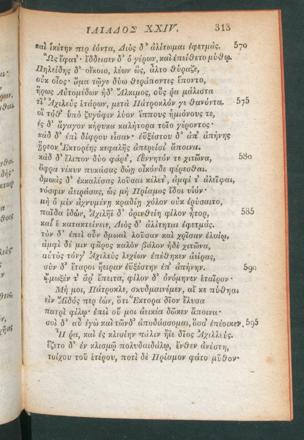 ΙΛΙΑΔΟΣ XXIV. 313
καὶ ἱκέτην περ ἐόντα, Διὸς δ' ἀλίτωμαι ἐφετμάς. 570
Ὣς ἔφατ'· ἔδδεισεν δ' ὁ γέρων, καὶ ἐπείθετο μύθῳ.
Πηλείδης δ' οἴκοιο, λέων ὣς, ἆλτο θύραζε,
οὐκ οἶος· ἅμα τῷγε δύω θεράποντες ἕποντο,
ἥρως Αὐτομέδων ἠδ' Ἄλκιμος, οὕς ῥα μάλιστα
τῖ' Ἀχιλεὺς ἑτάρων, μετὰ Πάτροκλόν γε θανόντα. 575
οἳ τόθ' ὑπὸ ζυγόφιν λύον ἵππους ἡμιόνους τε,
ἐς δ' ἄγαγον κήρυκα καλήτορα τοῖο γέροντος·
κὰδ δ' ἐπὶ δίφρου εἷσαν· ἐϋξέστου δ' ἀπ' ἀπήνης
ᾕρεον Ἑκτορέης κεφαλῆς ἀπερείσι' ἄποινα.
κὰδ δ' ἔλιπον δύο φάρε', ἐΰννητόν τε χιτῶνα, 580
ὄφρα νέκυν πυκάσας δώῃ οἶκόνδε φέρεσθαι.
δμωὰς δ' ἐκκαλέσας λοῦσαι κέλετ', ἀμφί τ' ἀλεῖψαι,
νόσφιν ἀειράσας, ὡς μὴ Πρίαμος ἴδοι υἱόν·
μὴ ὁ μὲν ἀχνυμένῃ κραδίῃ χόλον οὐκ ἐρύσαιτο,
παῖδα ἰδών, Ἀχιλῆϊ δ' ὀρινθείη φίλον ἦτορ, 585
καὶ ἑ κατακτείνειε, Διὸς δ' ἀλίτηται ἐφετμάς.
τὸν δ' ἐπεὶ οὖν δμωαὶ λοῦσαν καὶ χρῖσαν ἐλαίῳ,
ἀμφὶ δέ μιν φᾶρος καλὸν βάλον ἠδὲ χιτῶνα,
αὐτὸς τόνγ' Ἀχιλεὺς λεχέων ἐπέθηκεν ἀείρας,
σὺν δ' ἕταροι ἤειραν ἐϋξέστην ἐπ' ἀπήνην. 590
ᾤμωξέν τ' ἄρ' ἔπειτα, φίλον δ' ὀνόμηνεν ἑταῖρον·
Μή μοι, Πάτροκλε, σκυδμαινέμεν, αἴ κε πύθηαι
εἰν Ἄϊδός περ ἐὼν, ὅτι Ἕκτορα δῖον ἔλυσα
πατρὶ φίλῳ· ἐπεὶ οὔ μοι ἀεικέα δῶκεν ἄποινα·
σοὶ δ' αὖ ἐγὼ καὶ τῶνδ' ἀποδάσσομαι, ὅσσ' ἐπέοικεν. 595
Ἦ ῥα, καὶ ἐς κλισίην πάλιν ἤϊε δῖος Ἀχιλλεύς.
ἕζετο δ' ἐν κλισμῷ πολυδαιδάλῳ, ἔνθεν ἀνέστη,
τοίχου τοῦ ἑτέρου, ποτὶ δὲ Πρίαμον φάτο μῦθον·